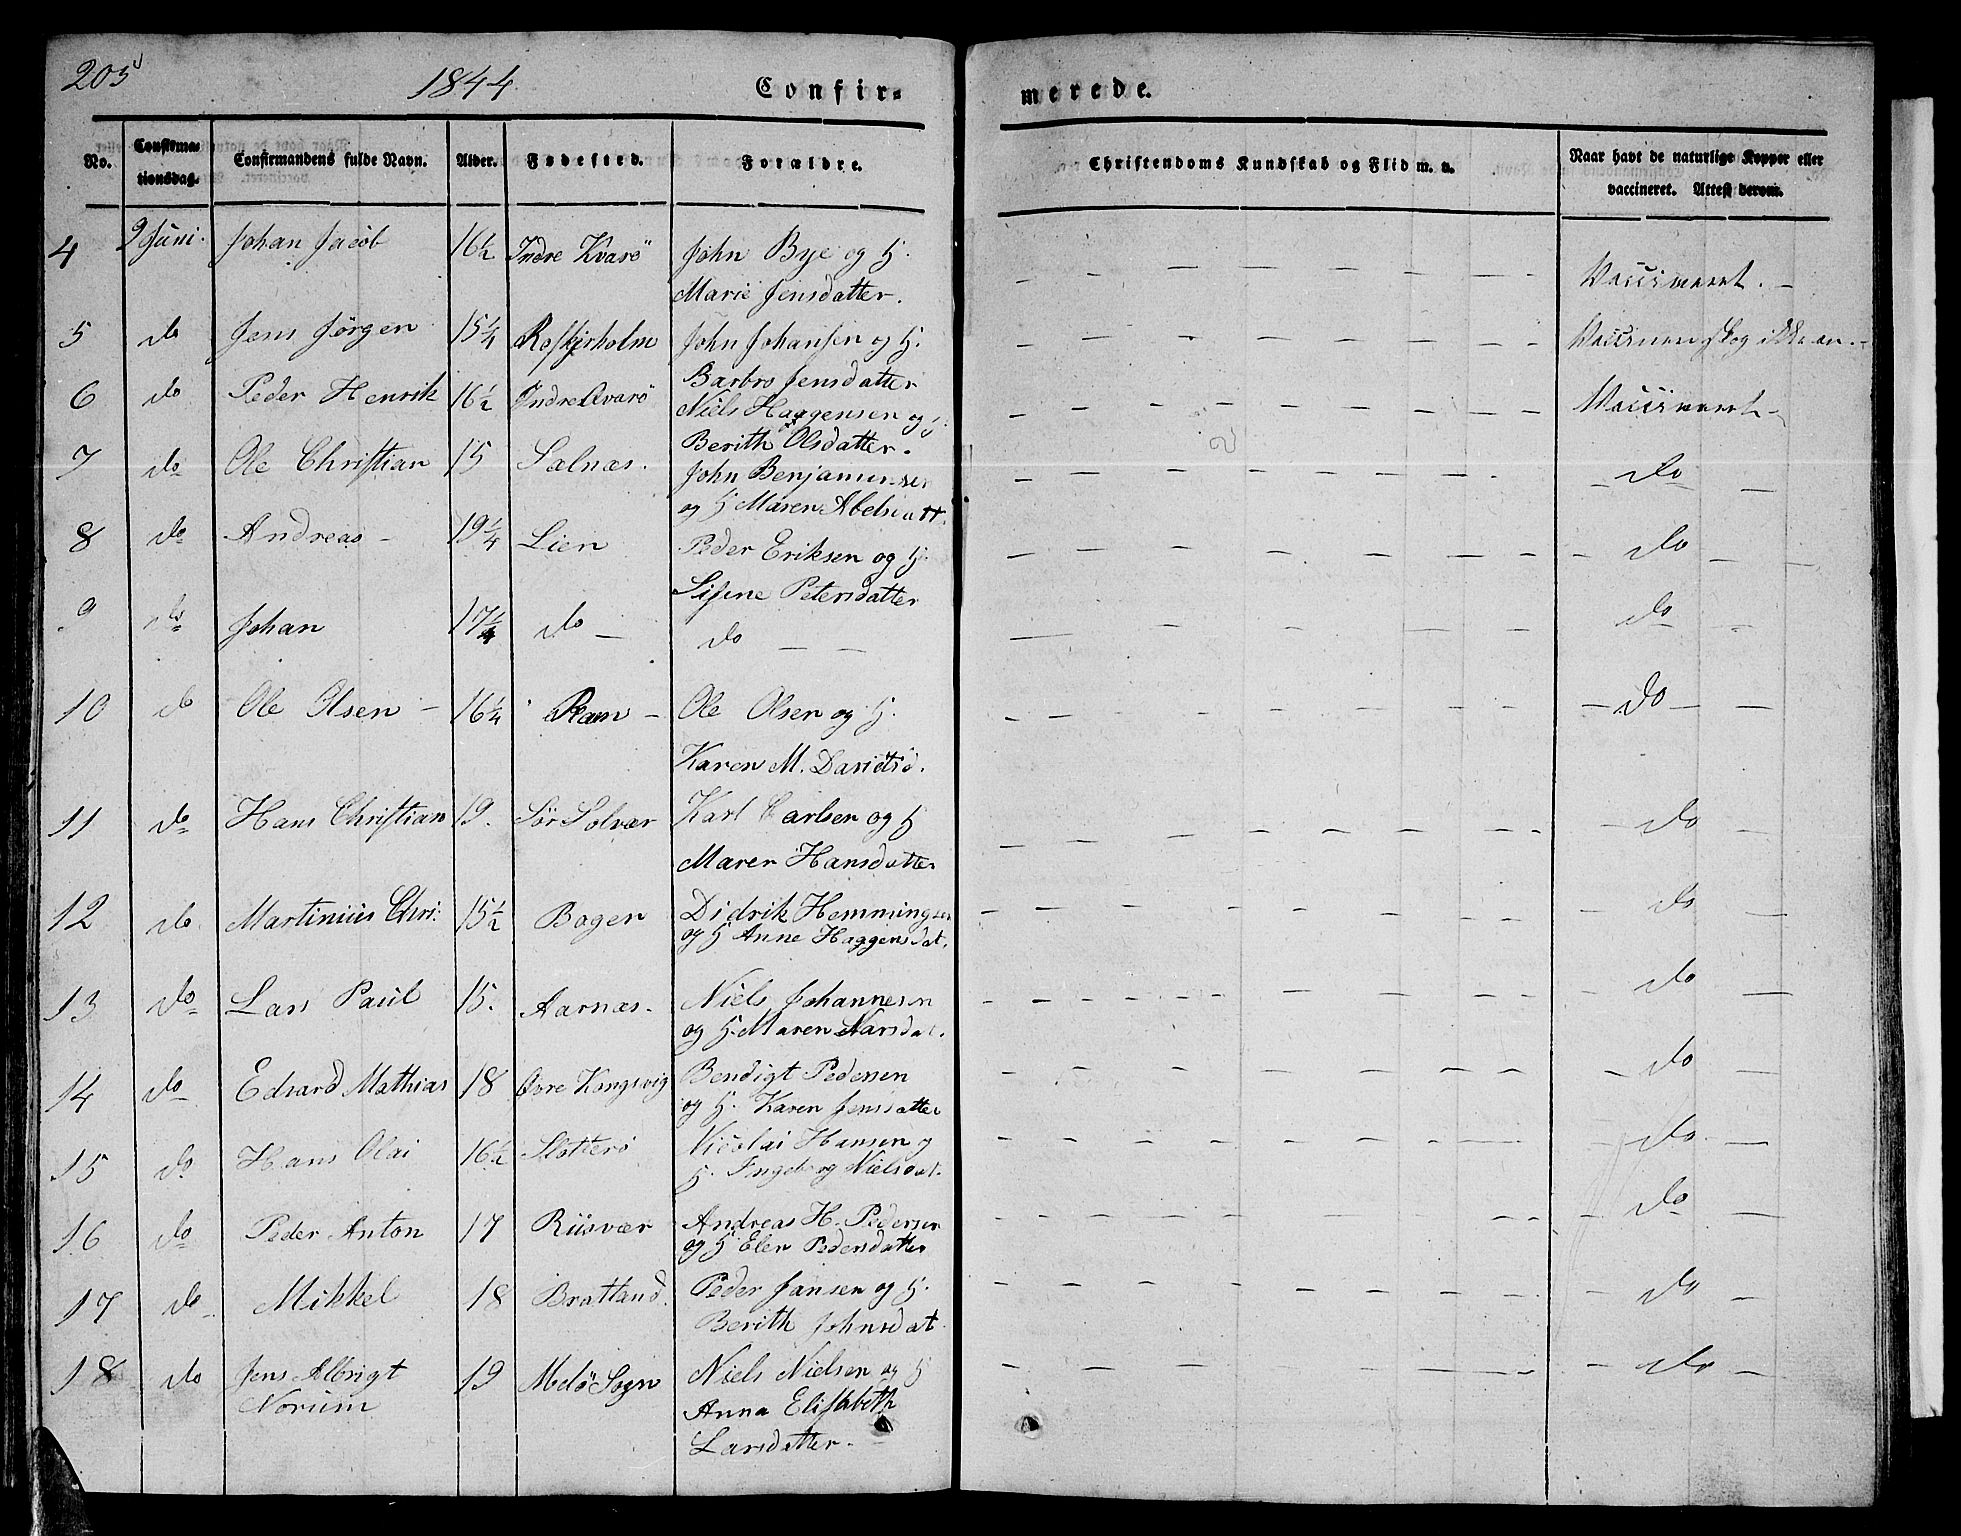 205
1844
Confir-
merede.
No.
Confirma-
tionsdag.
Confirmandens fulde Navn.
Alder.
Fødested.
Forældre.
Christendoms Kundskab og Flid m. v.
Naar havt de naturlige Kopper eller
vaccineret. Attest derom.
4 2 Juni. Johan Jacob 16½ Indre Kvarö John Bye og H. Vaccineret. -
Marie Jensdatter.
5 do Jens Jörgen 15¼ Roskjirholm John Johansen og H. Vaccinen slog ikke an. -
Barbro Jensdatter
6 do Peder Henrik 16½ Indre Qvarö Niels Haggensen og H. Vaccineret -
Berith Olsdatter.
7 do Ole Christian 15 Selnæs. John Benjaminsen - do -
og H Maren Abelsdatt.
8 do Andreas - 19¼ Lien Peder Eriksen og H. - do -
Sifene Petersdatter
9 do Johan 17¼ do - do - - do -
10 do Ole Olsen - 16¼ Ram - Ole Olsen og H. - do - -
Karen M. Davidtsd.
11 do Hans Christian 19. Sör Solvær Karl Carlsen og H - do -
Maren Hansdatter
12 do. Martinius Chri: 15½ Bogen Didrik Hemmingsen - do -
og H Anne Haggensdat.
13 do Lars Paul 15. Aarnæs. Niels Johannesen do -
og H. Maren Larsdat.
14 do Edvard Mathias 18 Övre Kongsvig Bendigt Pedersen do
og H. Karen Jensdatter
15 do Hans Olai 16½ Slotterö Nicolai Hansen og do -
H. Ingeborg Nielsdat.
16 do Peder Anton 17 Riisvær Andreas H. Pedersen do
og H Elen Pedersdatter
17 do Mikkel 18 Bratland. Peder Jansen og H. do -
Berith Johnsdat.
18 do Jens Albrigt 19 Melö Sogn Niels Nielsen og H - do -
Norum Anna Elisabeth
Larsdatter.